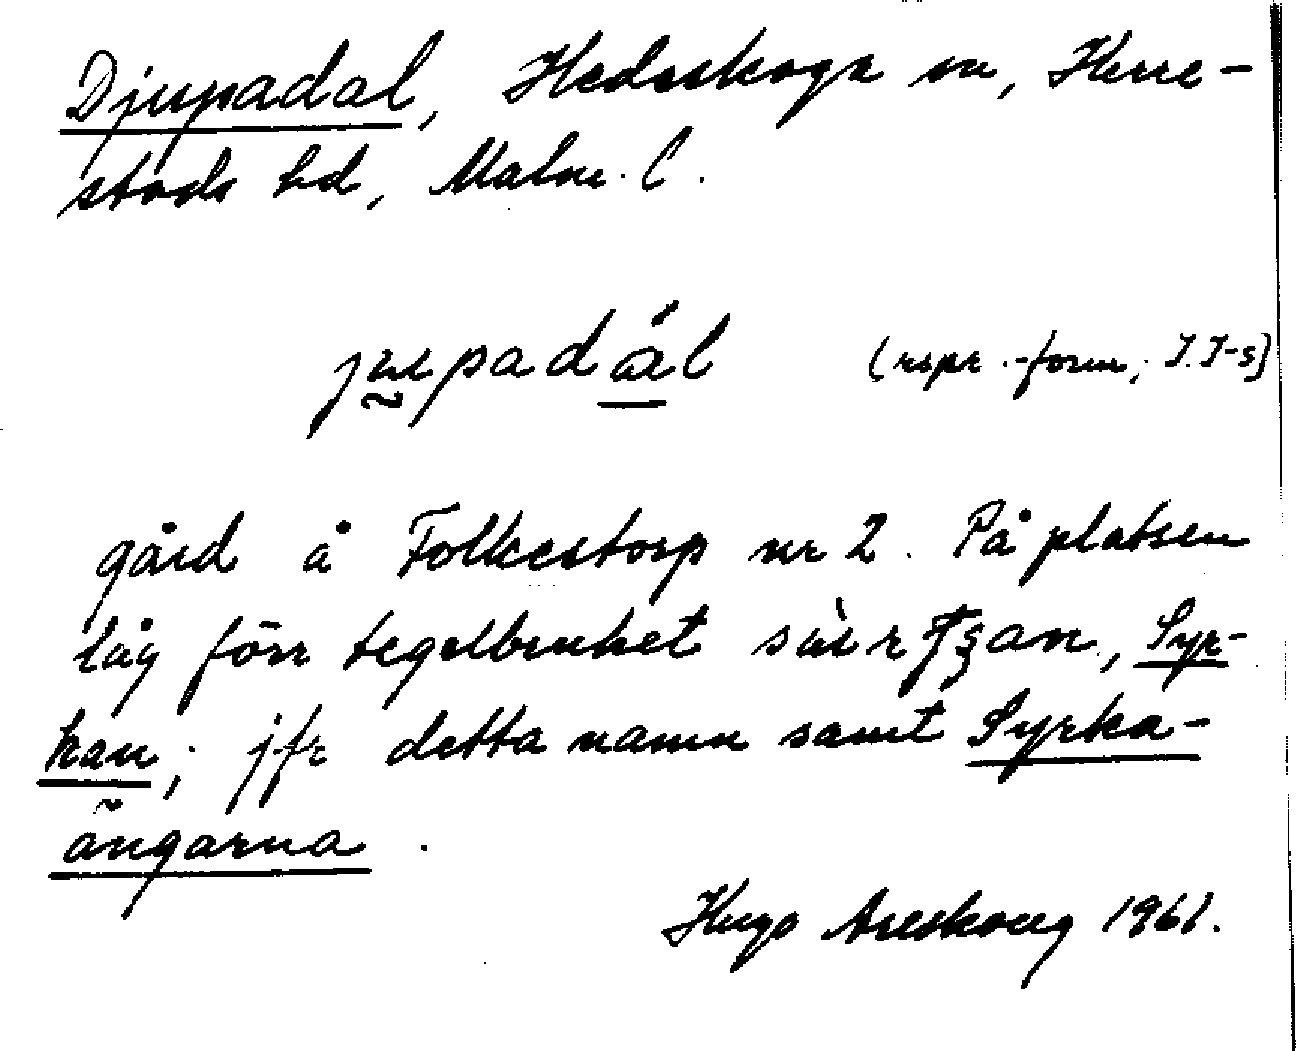 Djupadal, Hedeskoga sn, Herre-
stads hd, Malm. L.
jupadál (rspr.-form, I.I-s)
gård å Folkestorp nr 2. På platsen
låg förr tegelbruket Syr-
kan; jfr detta namn samt Syrka-
ängarna.
Hugo Areskoug 1961.